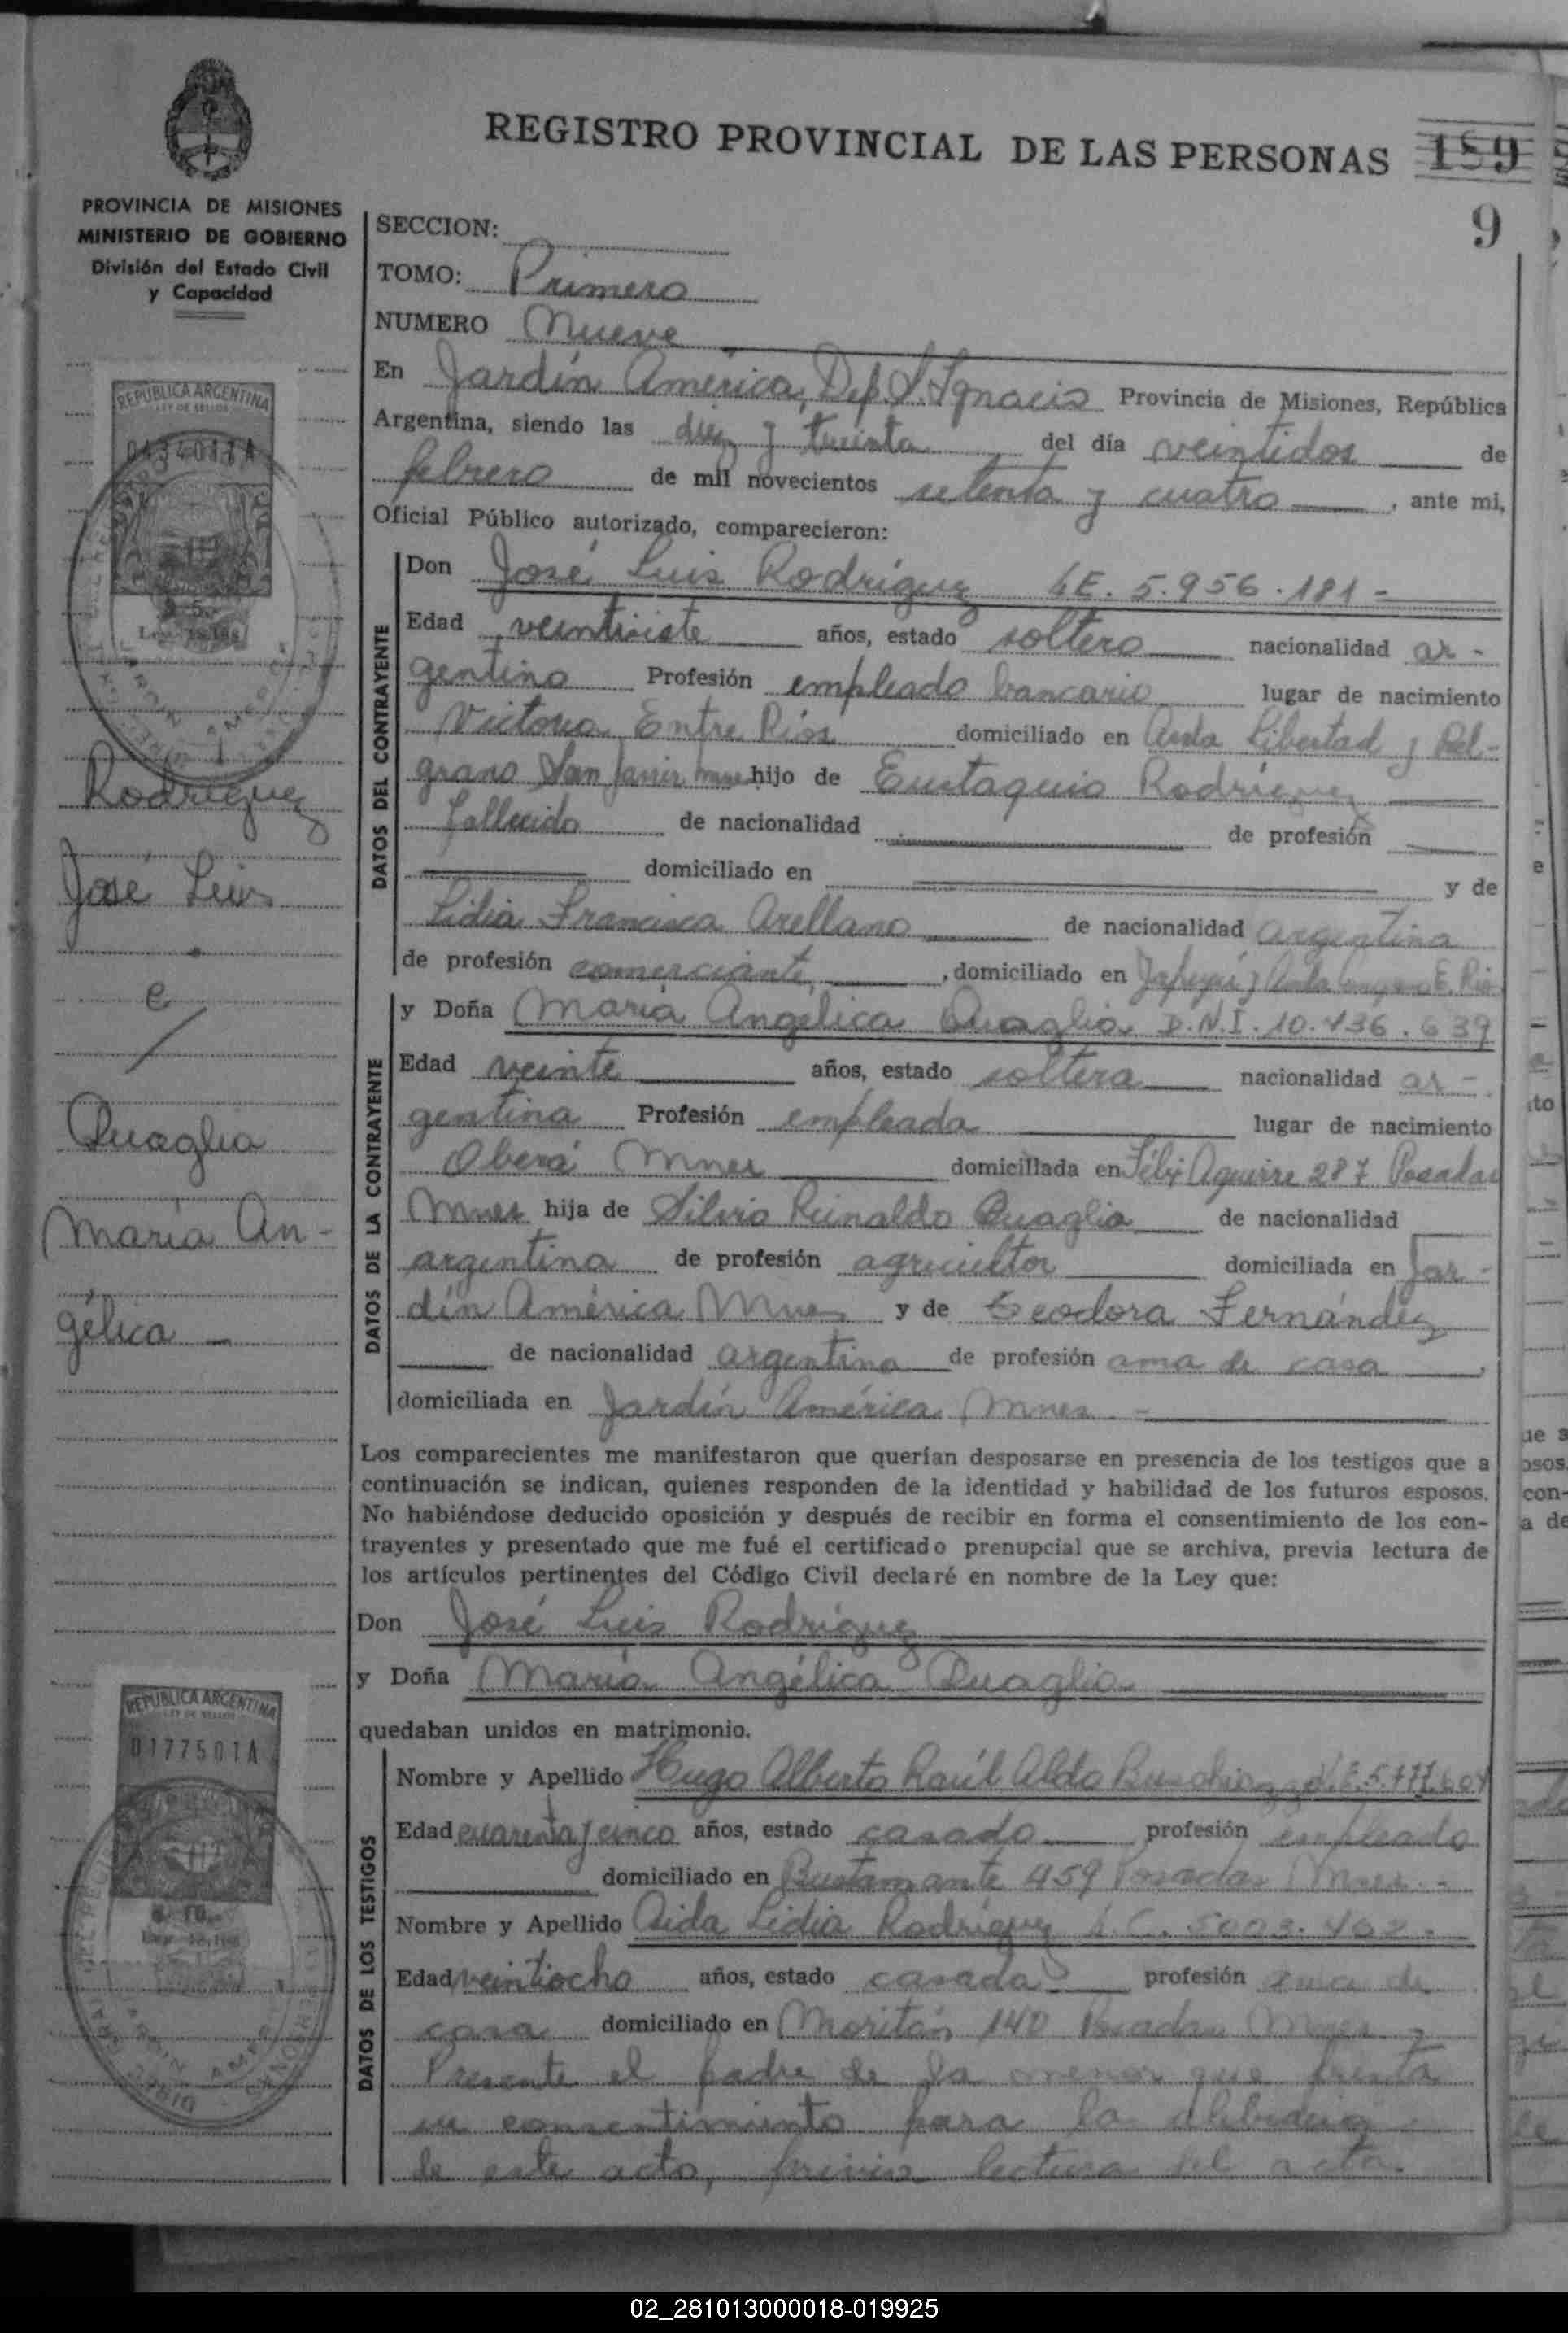 REGISTRO PROVINCIAL DE LAS PERSONAS 159
9
PROVINCIA DE MISIONES
MINISTERIO DE GOBIERNO
División del Estado Civil
y Capacidad
REPUBLICA ARGENTINA
LEY DE SELLOS
Rodríguez
José Luis
c/
Quaglia
María An-
gélica
REPUBLICA ARGENTINA
LEY DE SELLOS
0177501A
SECCION:
TOMO: Primero
NUMERO Nueve
En Jardín América, Dep. S. Ignacio Provincia de Misiones, República
Argentina, siendo las diez y treinta del día veintidos de
febrero de mil novecientos setenta y cuatro, ante mi,
Oficial Público autorizado, comparecieron:
DATOS DEL CONTRAYENTE
Don José Luis Rodríguez LE. 5.956.181-
Edad veintisiete años, estado soltero nacionalidad ar-
gentino Profesión empleado bancario lugar de nacimiento
Victoria Entre Ríos domiciliado en Avda Libertad y Bel-
grano San Javier Mnes hijo de Eustaquio Rodríguez
fallecido de nacionalidad de profesión
domiciliado en y de
Lidia Francisca Arellano de nacionalidad argentina
de profesión comerciante, domiciliado en Yapeyú y E. Rios
DATOS DE LA CONTRAYENTE
y Doña María Angélica Quaglia D.N.I. 10.436.639
Edad veinte años, estado soltera nacionalidad ar-
gentina Profesión empleada lugar de nacimiento
Oberá Mnes domicillada en Félix Aguirre 287 Posadas
Mnes hija de Silvio Reinaldo Quaglia de nacionalidad
argentina de profesión agricultor domiciliada en Jar-
dín América Mnes y de Teodora Fernández
de nacionalidad argentina de profesión ama de casa,
domiciliada en Jardín América Mnes.-
Los comparecientes me manifestaron que querían desposarse en presencia de los testigos que a
continuación se indican, quienes responden de la identidad y habilidad de los futuros esposos.
No habiéndose deducido oposición y después de recibir en forma el consentimiento de los con-
trayentes y presentado que me fué el certificado prenupcial que se archiva, previa lectura de
los artículos pertinentes del Código Civil declaré en nombre de la Ley que:
Don José Luis Rodríguez
y Doña María Angélica Quaglia
quedaban unidos en matrimonio.
DATOS DE LOS TESTIGOS
Nombre y Apellido Hugo Alberto Raúl Aldo
Edad cuarenta y cinco años, estado casado profesión empleado
domiciliado en Bustamante 459 Posadas Mnes.-
Nombre y Apellido Aida Lidia Rodríguez L.C.
Edad veintiocho años, estado casada profesión ama de
casa domiciliado en Moritán 140 Posadas Mnes.
Presente el padre de la menor que presta
su consentimiento para la
de este acto, previa lectura del acta.
02_281013000018-019925